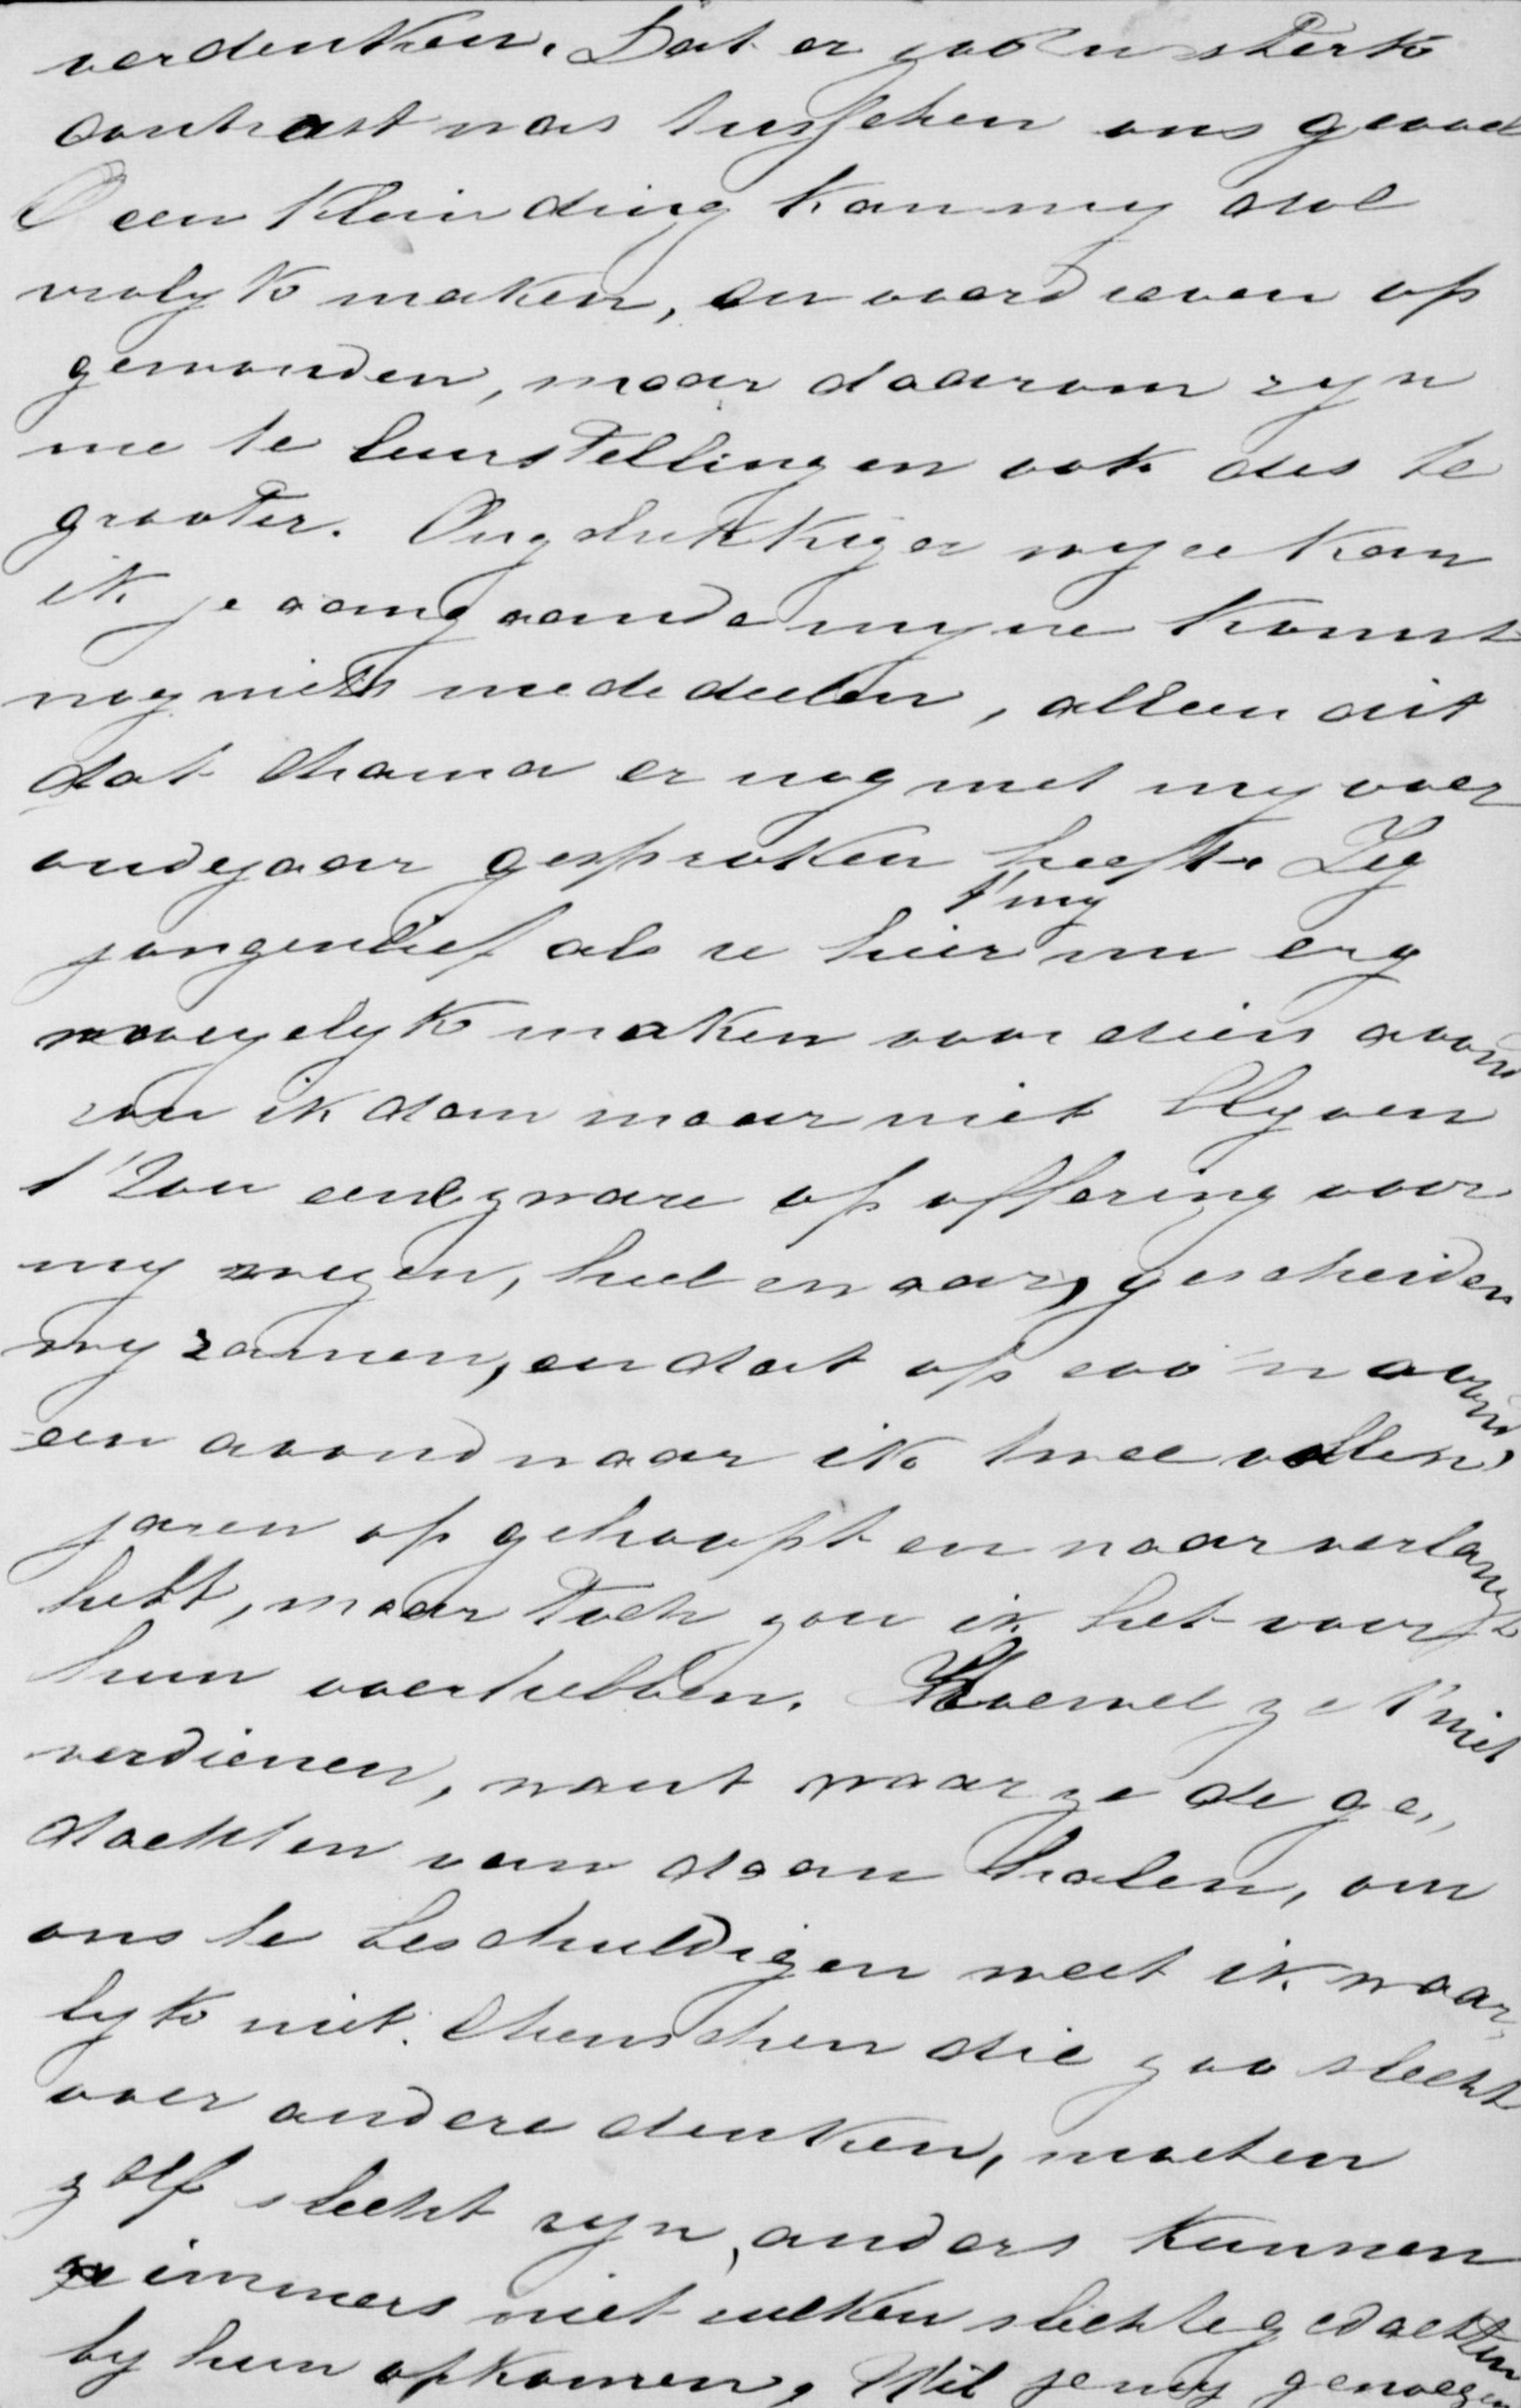 verdenken. Dat er zoo'n sterk
contrast was tusschen ons gevoel
O een klein ding kan my dol
vrolyk maken, en overdreven op
gewonden, maar daarom zyn
me te leurstellingen ook des te
grooter. Ongelukkiger wyze kan
ik je aangaande myne komst
nog niets mededeelen, alleen dit
dat Mama er nog met my over
oudejaar gesproken heeft. Zeg
jongenlief als ze hier t' my nu erg
moeyelyk maken voor dien avond
zou ik dan maar niet blyven
t' Zou een zware op offering voor
my wezen, heel en aar, gescheiden
wy zamen, en dat op zoo'n avond,
een avond waar ik twee vollen
jaren op gehoopt en naar verlangt
hebt, maar toch zou ik het voor
hun overhebben. Hoewel ze t' niet
verdienen, want waar ze de ge,,
dachten van daan halen, om
ons te beschuldigen weet ik waar,,
lyk niet. Menschen die zoo slecht
over andere denken, moeten
zelf slecht zyn, anders kunnen
ze immers niet zulken slechte gedachten
by hun opkomen, Wil je my genoegen